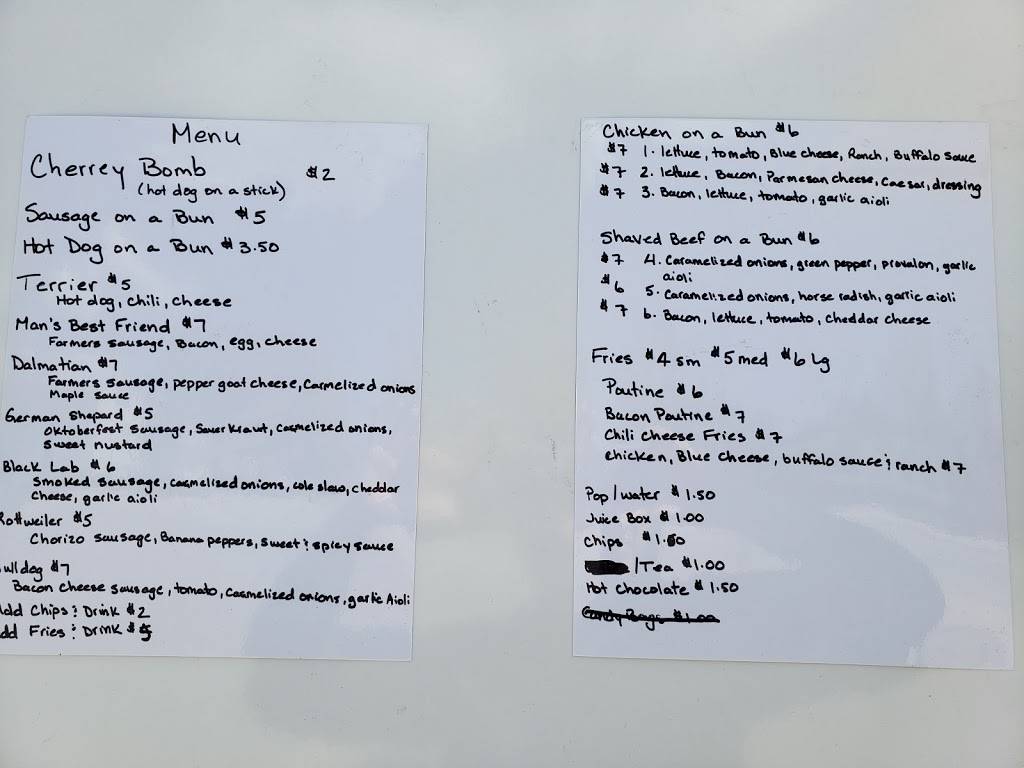 Menu
Cherrey Bomb $2
(hot dog on a stick)
Sausage on a Bun $5
Hot Dog on a Bun $3.50
Terrier $5
Hot dog, Chili, Cheese
Man's Best Friend $7
Farmers Sausage, Bacon, egg, cheese
Dalmatian $7
Farmers Sausage, pepper goat cheese, Carmelized onions
Maple sauce
German Shapard $5
Oktoberfest Sausage, Sauer Kraut, Carmelized onions,
Sweet mustard
Black Lab $6
Smoked Sausage, Carmelized onions, cole slaw, cheddar
Cheese, garlic aioli
Rottweiler $5
Chorizo Sausage, Banana peppers, Sweet & Spicy Sauce
ulldog $7
Bacon Cheese Sausage, tomato, Carmelized onions, garlic Aioli
Add Chips & Drink $2
dd Fries & Drink $5
Chicken on a Bun $6
$7 1. lettuce, tomato, Blue cheese, Ranch, Buffalo Sauce
$7 2. lettuce, Bacon, Parmesan Cheese, Caesar, dressing
$7 3. Bacon, lettuce, tomato, garlic aioli
Shaved Beef on a Bun $6
$7 4. Caramelized onions, green pepper, provalon, garlic
aioli
$6 5. Caramelized onions, horse radish, garlic aioli
$7 6. Bacon, lettuce, tomato, Cheddar Cheese
Fries $4 sm $5 med $6 lg
Poutine $6
Bacon Poutine $7
Chili Cheese Fries $7
Chicken, Blue Cheese, buffalo sauce & ranch $7
Pop/water $1.50
Juice Box $1.00
Chips $1.00
/Tea $1.00
Hot Chocolate $1.50
Candy Bags $1.00